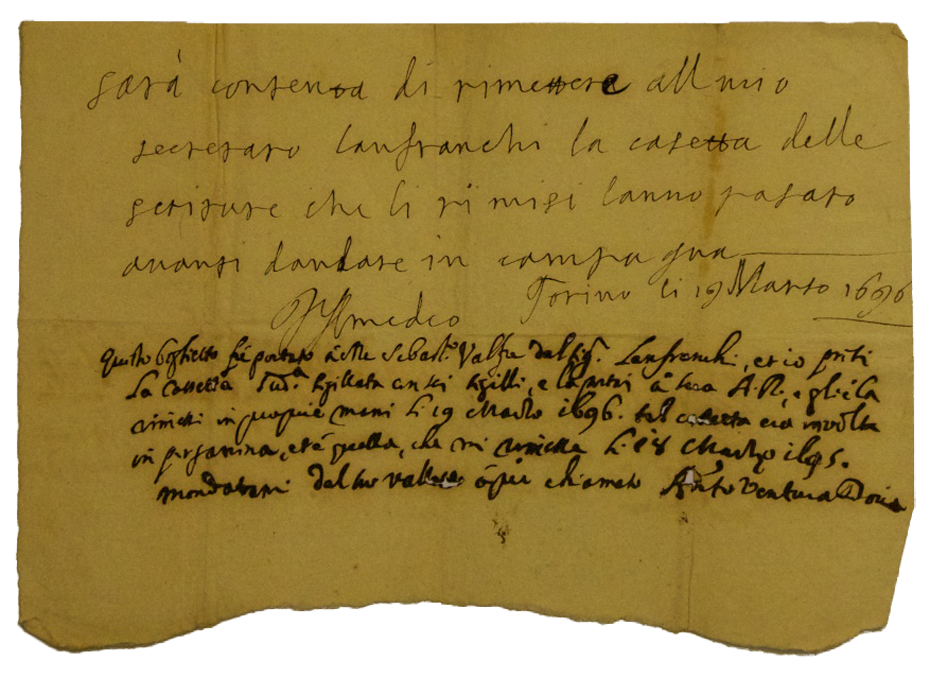 sarà contenta di rimettere all mio
secretaro lanfranchi la casetta delle
scriture che li rimisi lanno pasato
avansi dandare in campagna
Torino li 19 Marso 1696
V Amedeo
Questo biglietto fù portato à Me Sebast.º Valfre dal sig.r Lanfranchi, et io portai
La Cassetta Sud.ª sigillata con sei sigilli, e la portai à Sua A. R., e gliela
rimessi in proprie mani li 19 Marzo 1696. tal casetta era involta
in pergamina, et è quella, che mi rimesse li 18 Marzo 1695.
mandatami dal suo valletto à piè chiamato Ventura Doria